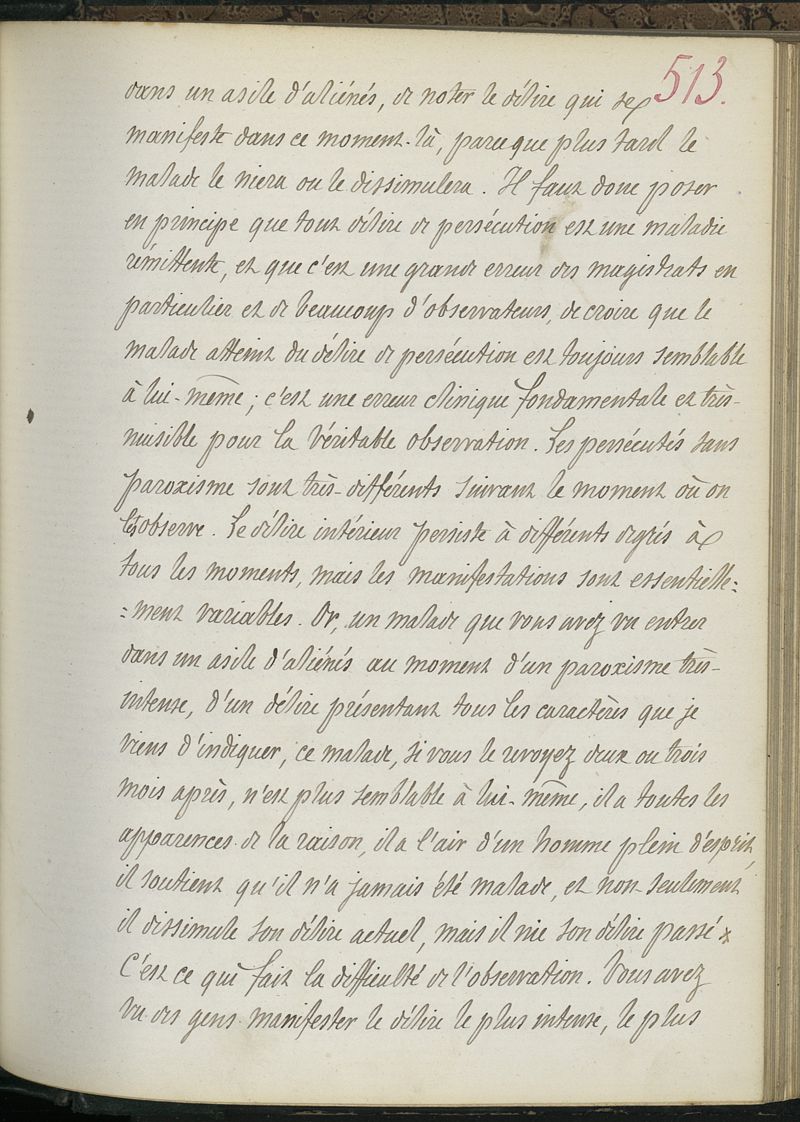 513.
dans un asile d'aliénés, de noter le délire qui se
manifeste dans ce moment-là, parceque plus tard le
malade le niera ou le dissimulera. Il faut donc poser
en principe que tout délire de persécution est une maladie
rémittente, et que c'est une grande erreur des magistrats en
particulier et de beaucoup d'observateurs, de croire que le
malade atteint du délire de persécution est toujours semblable
à lui-même; c'est une erreur clinique fondamentale et très-
nuisible pour la véritable observation. Les persécutés sans
paroxisme sont très-différents suivant le moment où on
les observe. Le délire intérieur persiste à différents degrés à
tous les moments, mais les manifestations sont essentielle=
=ment variables. Or, un malade que vous avez vu entrer
dans un asile d'aliénés au moment d'un paroxisme très-
intense, d'un délire présentant tous les caractères que je
viens d'indiquer, ce malade, si vous le revoyez deux ou trois
mois après, n'est plus semblable à lui-même, il a toutes les
apparences de la raison, il a l'air d'un homme plein d'esprit,
il soutient qu'il n'a jamais été malade, et non-seulement
il dissimule son délire actuel, mais il nie son délire passé x
C'est ce qui fait la difficulté de l'observation. Vous avez
vu des gens manifester le délire le plus intense, le plus